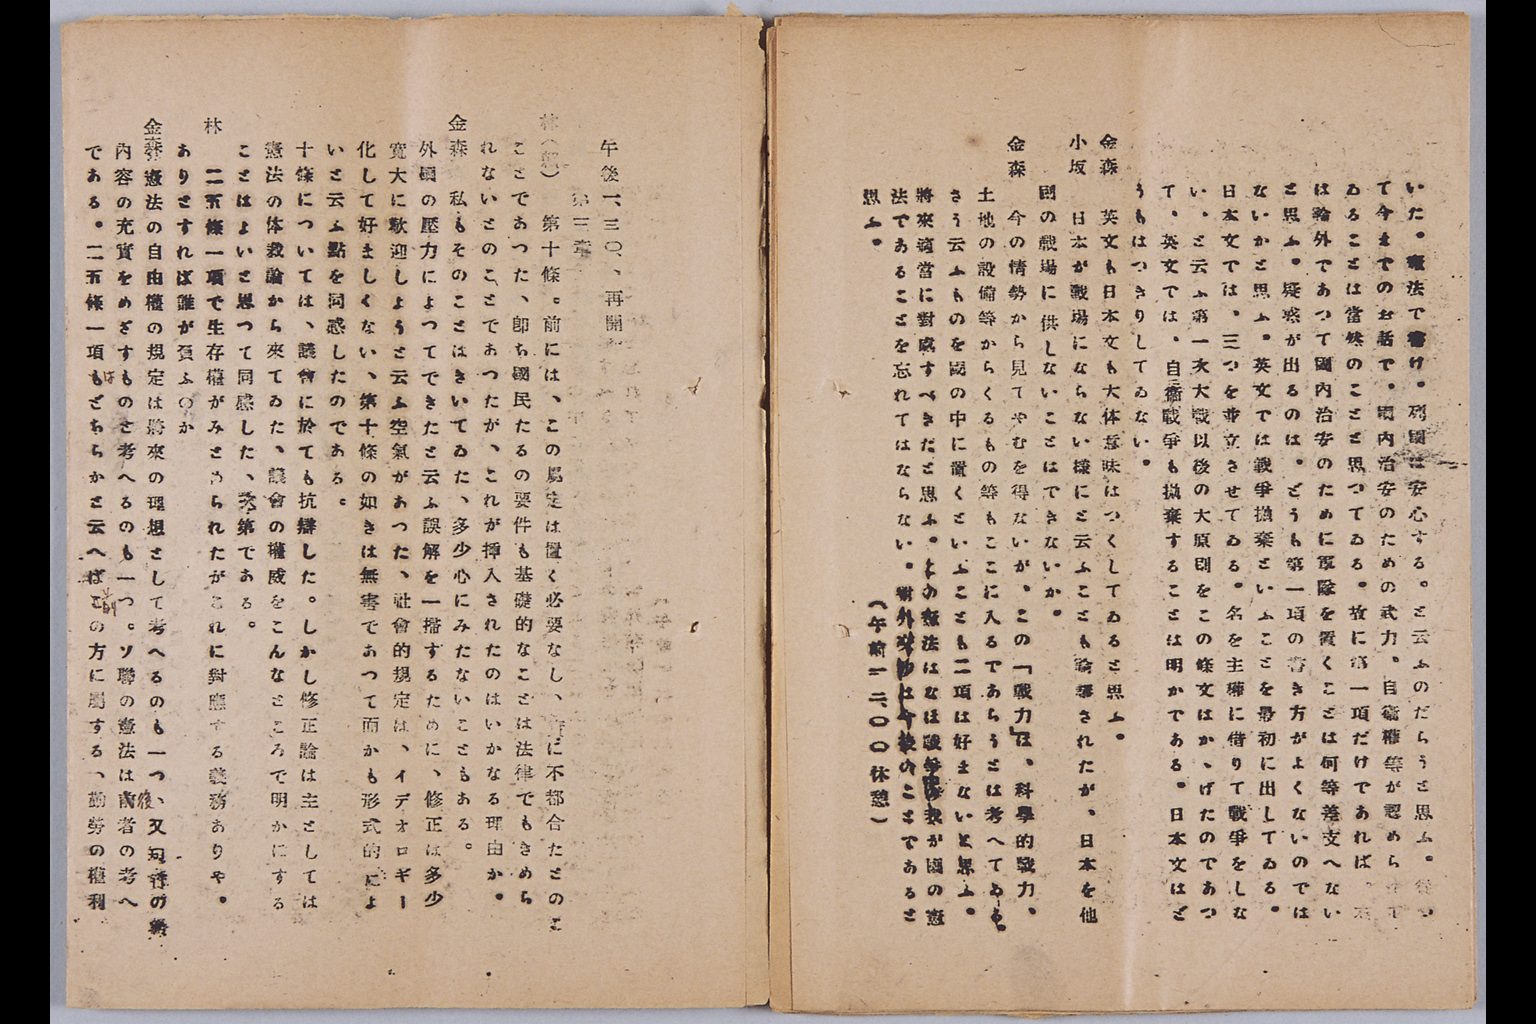 いた。憲法で書け。列國は安心する。と云ふのだらうと思ふ。從つ
て今までのお話で。國內治安のための武力。自衞權等が認めら
ゐることは當然のことと思つてゐる。故に第一項だけであれば
は論外であつて國內治安のために軍隊を置くことは何等差支へない
と思ふ。疑惑が出るのは。どうも第一項の書き方がよくないのでは
ないかと思ふ。英文では戰爭抛棄といふことを最初に出してゐる。
日本文では、三つを並立させてゐる。名を主權に借りて戰爭をしな
い、と云ふ第一次大戰以後の大原則をこの條文はかゝげたのであつ
て、英文では。自衞戰爭も抛棄することは明かである。日本文はど
うもはつきりしてゐない。
金森 英文も日本文も大体意味はつくしてゐると思ふ。
小坂 日本が戰場にならない樣にと云ふことも論議されたが、日本を他
國の戰場に供しないことはできないか。
金森 今の情勢から見てやむを得ないが、この「戰力」は、科學的戰力、
土地の設備等からくるもの等もここに入るであらうとは考へてゐる。
さう云ふものを國の中に置くといふことも二項は好まないと思ふ。
將來適當に對處すべきだと思ふ。よの憲法はなほ戰爭 我が國の憲
法であることを忘れてはならない。對外 は今後のことであると
思ふ。
(午前一二、〇〇休憩)
午後一、三〇、再開
第三章
林(〓) 第十條。前には、この規定は置く必要なし、 に不都合たとのこ
ことであつた、卽ち國民たるの要件も基礎的なことは法律でもきめら
れないとのことであつたが、これが挿入されたのはいかなる理由か。
金森 私もそのことはきいてゐた、多少心にみたないこともある。
外國の壓力によつてできたと云ふ誤解を一掃するために、修正は多少
寬大に歡迎しようと云ふ空氣があつた、社會的規定は、イデオロギー
化して好ましくない、第十條の如きは無害であつて而かも形式的によ
いと云ふ點を同感したのである。
十條については、議會に於ても抗辯した。しかし修正論は主としては
憲法の体裁論から來てゐた、議會の權威をこんなところで明かにする
ことはよいと思つて同感した、次第である。
林 二五條一項で生存權がみとめられたがこれに對應する義務ありや。
ありとすれば誰が負ふのか
金森 憲法の自由權の規定は將來の理想として考へるのも一つ、又 の
內容の充實をめざすものと考へるのも一つ。ソ聯の憲法は後者の考へ
である。二五條一項もどちらかと云へば前の方に屬する、勤勞の權利